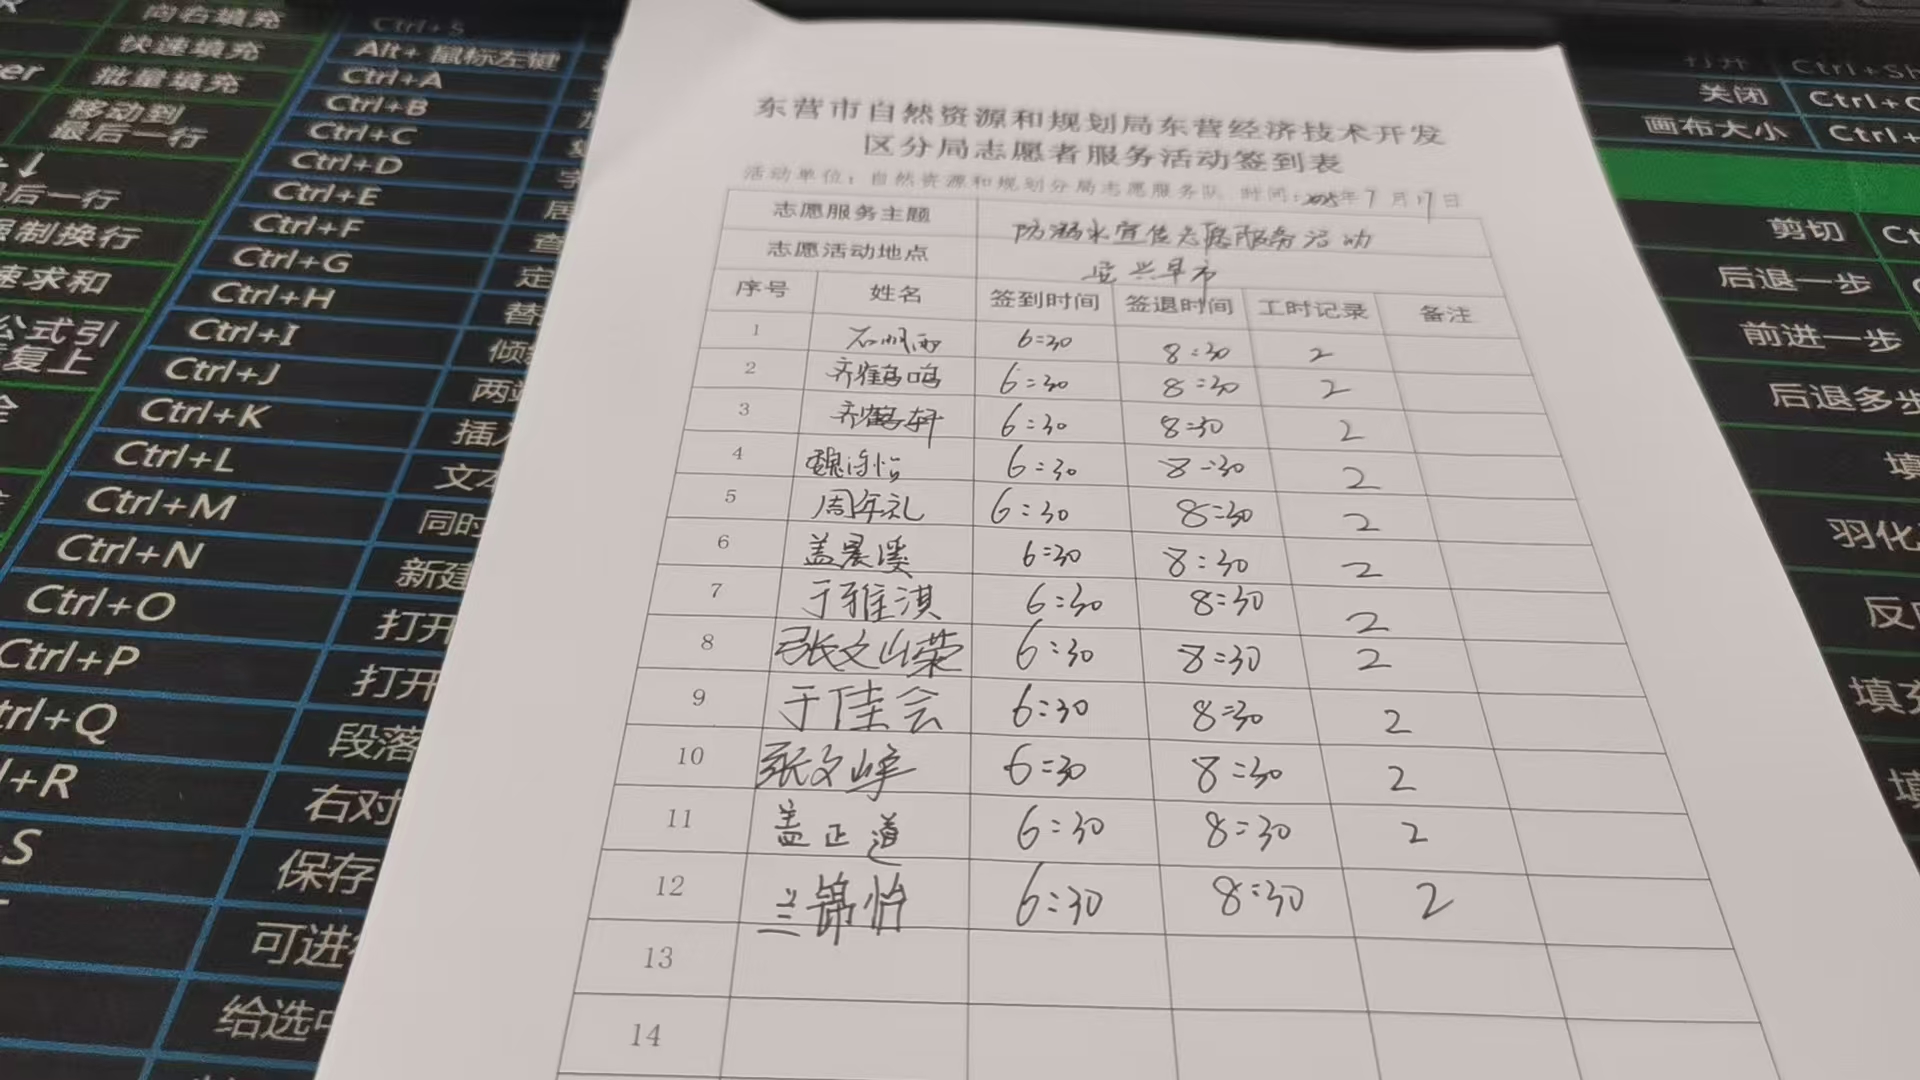 向右填充
Ctrl+S
快速填充
Alt+ 鼠标左键
批量填充
Ctrl+A
移动到
最后一行
Ctrl+B
Ctrl+C
Ctrl+D
后一行
Ctrl+E
强制换行
Ctrl+F
速求和
Ctrl+G
Ctrl+H
公式引
复上
Ctrl+I
Ctrl+J
Ctrl+K
Ctrl+L
Ctrl+M
同时
Ctrl+N
新建
Ctrl+O
打开
Ctrl+P
打开
Ctrl+Q
段落
+R
右对
S
保存
可进
给选中
东营市自然资源和规划局东营经济技术开发
区分局志愿者服务活动签到表
活动单位：自然资源和规划分局志愿服务队 时间：2025年7月17日
志愿服务主题 防溺水宣传志愿服务活动
志愿活动地点 早市
序号 姓名 签到时间 签退时间 工时记录 备注
1 6:30 8:30 2
2 齐鹤鸣 6:30 8:30 2
3 齐鹤轩 6:30 8:30 2
4 6:30 8:30 2
5 周年礼 6:30 8:30 2
6 盖晨溪 6:30 8:30 2
7 于雅淇 6:30 8:30 2
8 张文山荣 6:30 8:30 2
9 于佳会 6:30 8:30 2
10 张文峰 6:30 8:30 2
11 盖正道 6:30 8:30 2
12 兰锦怡 6:30 8:30 2
13
14
打开 Ctrl+Sh
关闭 Ctrl+
画布大小 Ctrl+
剪切
后退一步
前进一步
后退多步
填
羽化
反
填充
填